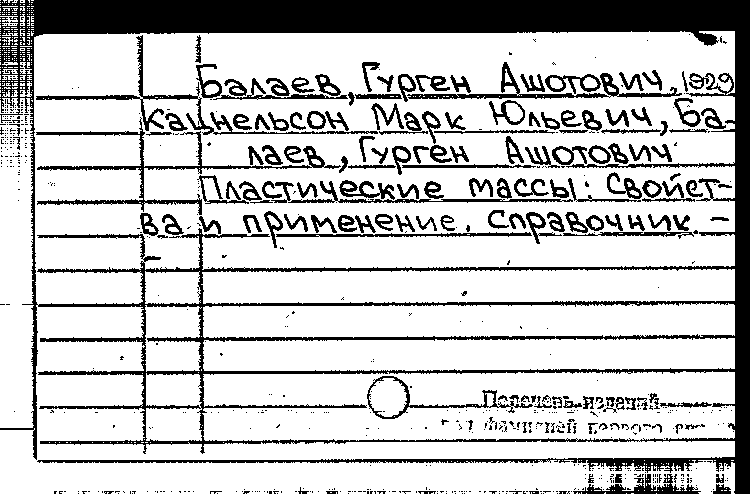 Балаев, Гурген Ашотович, 1929
Кацнельсон Марк Юльевич, Ба-
лаев, Гурген Ашотович
Пластические массы: Свойст-
ва и применение. Справочник. -
-
Перечень изданий
фамилией первого